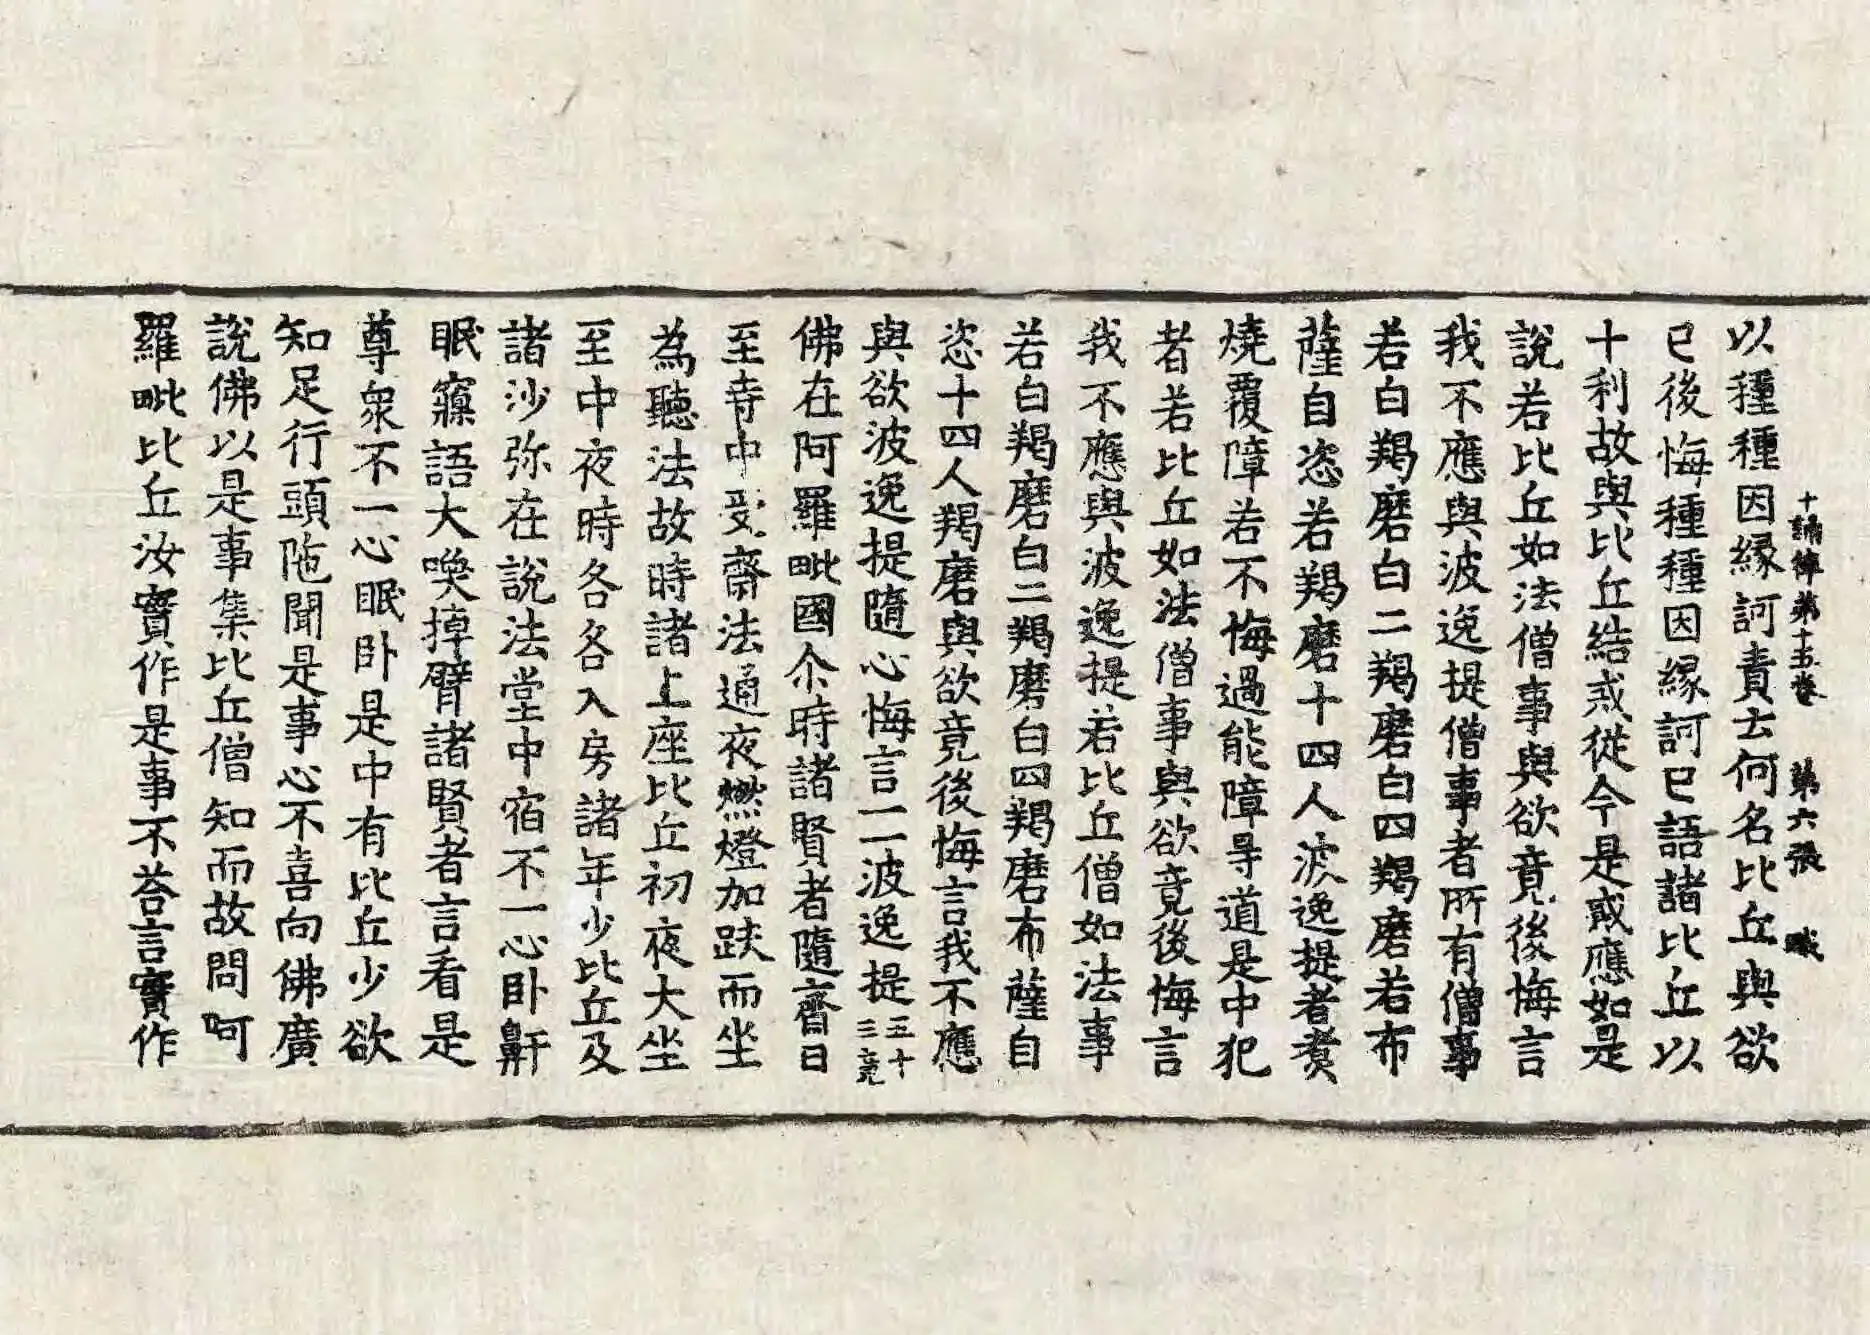 十誦律第十五卷 第六張 職
以種種因緣訶責去何名比丘與欲
已後悔種種因緣訶已語諸比丘以
十利故與比丘結戒從今是戒應如是
說若比丘如法僧事與欲竟後悔言
我不應與波逸提僧事者所有僧事
若白羯磨白二羯磨白四羯磨若布
薩自恣若羯磨十四人波逸提者煑
燒覆障若不悔過能障㝵道是中犯
者若比丘如法僧事與欲竟後悔言
我不應與波逸提若比丘僧如法事
若白羯磨白二羯磨白四羯磨布薩自
恣十四人羯磨與欲竟後悔言我不應
與欲波逸提隨心悔言一一波逸提五十三竟
佛在阿羅毗國尒時諸賢者隨齋日
至寺中受齋法通夜燃燈加趺而坐
為聽法故時諸上座比丘初夜大坐
至中夜時各各入房諸年少比丘及
諸沙弥在說法堂中宿不一心卧鼾
眠寱語大喚掉臂諸賢者言看是
尊衆不一心眠卧是中有比丘少欲
知足行頭陁聞是事心不喜向佛廣
說佛以是事集比丘僧知而故問阿
羅毗比丘汝實作是事不荅言實作